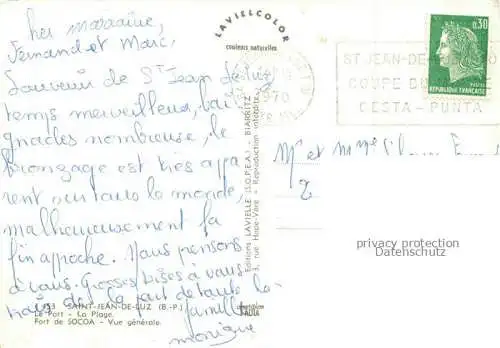 cher marraine,
Fernand et Marc,
Souvenir de St Jean de Luz
temps merveilleux, bai
gnades nombreuse, le
bronzage est très appa
rent sur tous le monde,
malheureusement la
fin approche. Nous pensons
à vous. Grosses bises à vous
trois de la part de toute la
famille
monique
LAVIELCOLOR
couleurs naturelles
Editions LAVIELLE (S.O.P.E.A.) - BIARRITZ
3, rue Hope-Vère - Reproduction interdite
153 SAINT-JEAN-DE-LUZ (B.-P.)
Le Port - La Plage.
Fort de SOCOA - Vue générale.
1970
ST JEAN-DE-
COUPE DU
CESTA-PUNTA
0,30
POSTES
REPUBLIQUE FRANÇAISE
Mr et Mme
privacy protection
Datenschutz